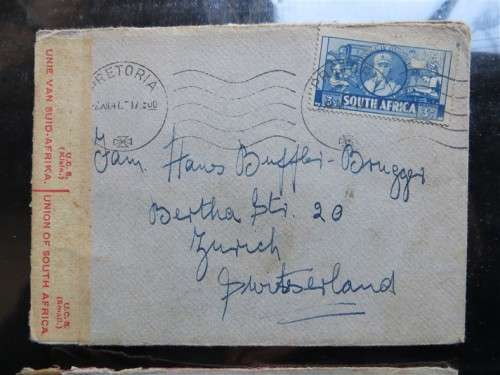 UNIE VAN SUID-AFRIKA.
UNION OF SOUTH AFRICA
U.C. 8.
U.C. 8.
PRETORIA
17
SOUTH AFRICA
3D
3D
Fam. Hans Buffler-Brugger
Bertha Str. 20
Zürich
Switserland